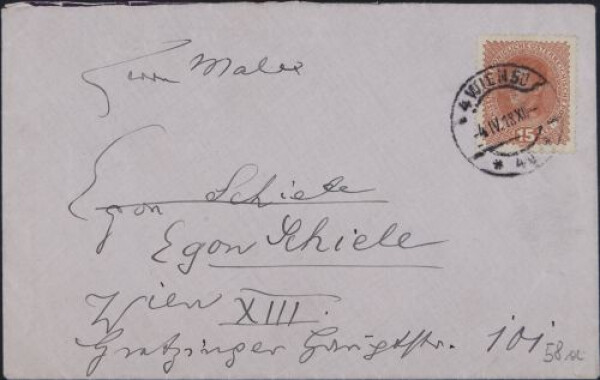 Herrn Maler
Egon Schiele
Egon Schiele
Wien XIII.
Hietzinger Hauptstr. 101
58a
4 WIEN 50
-4.IV.18 XI-
* 4d *
15